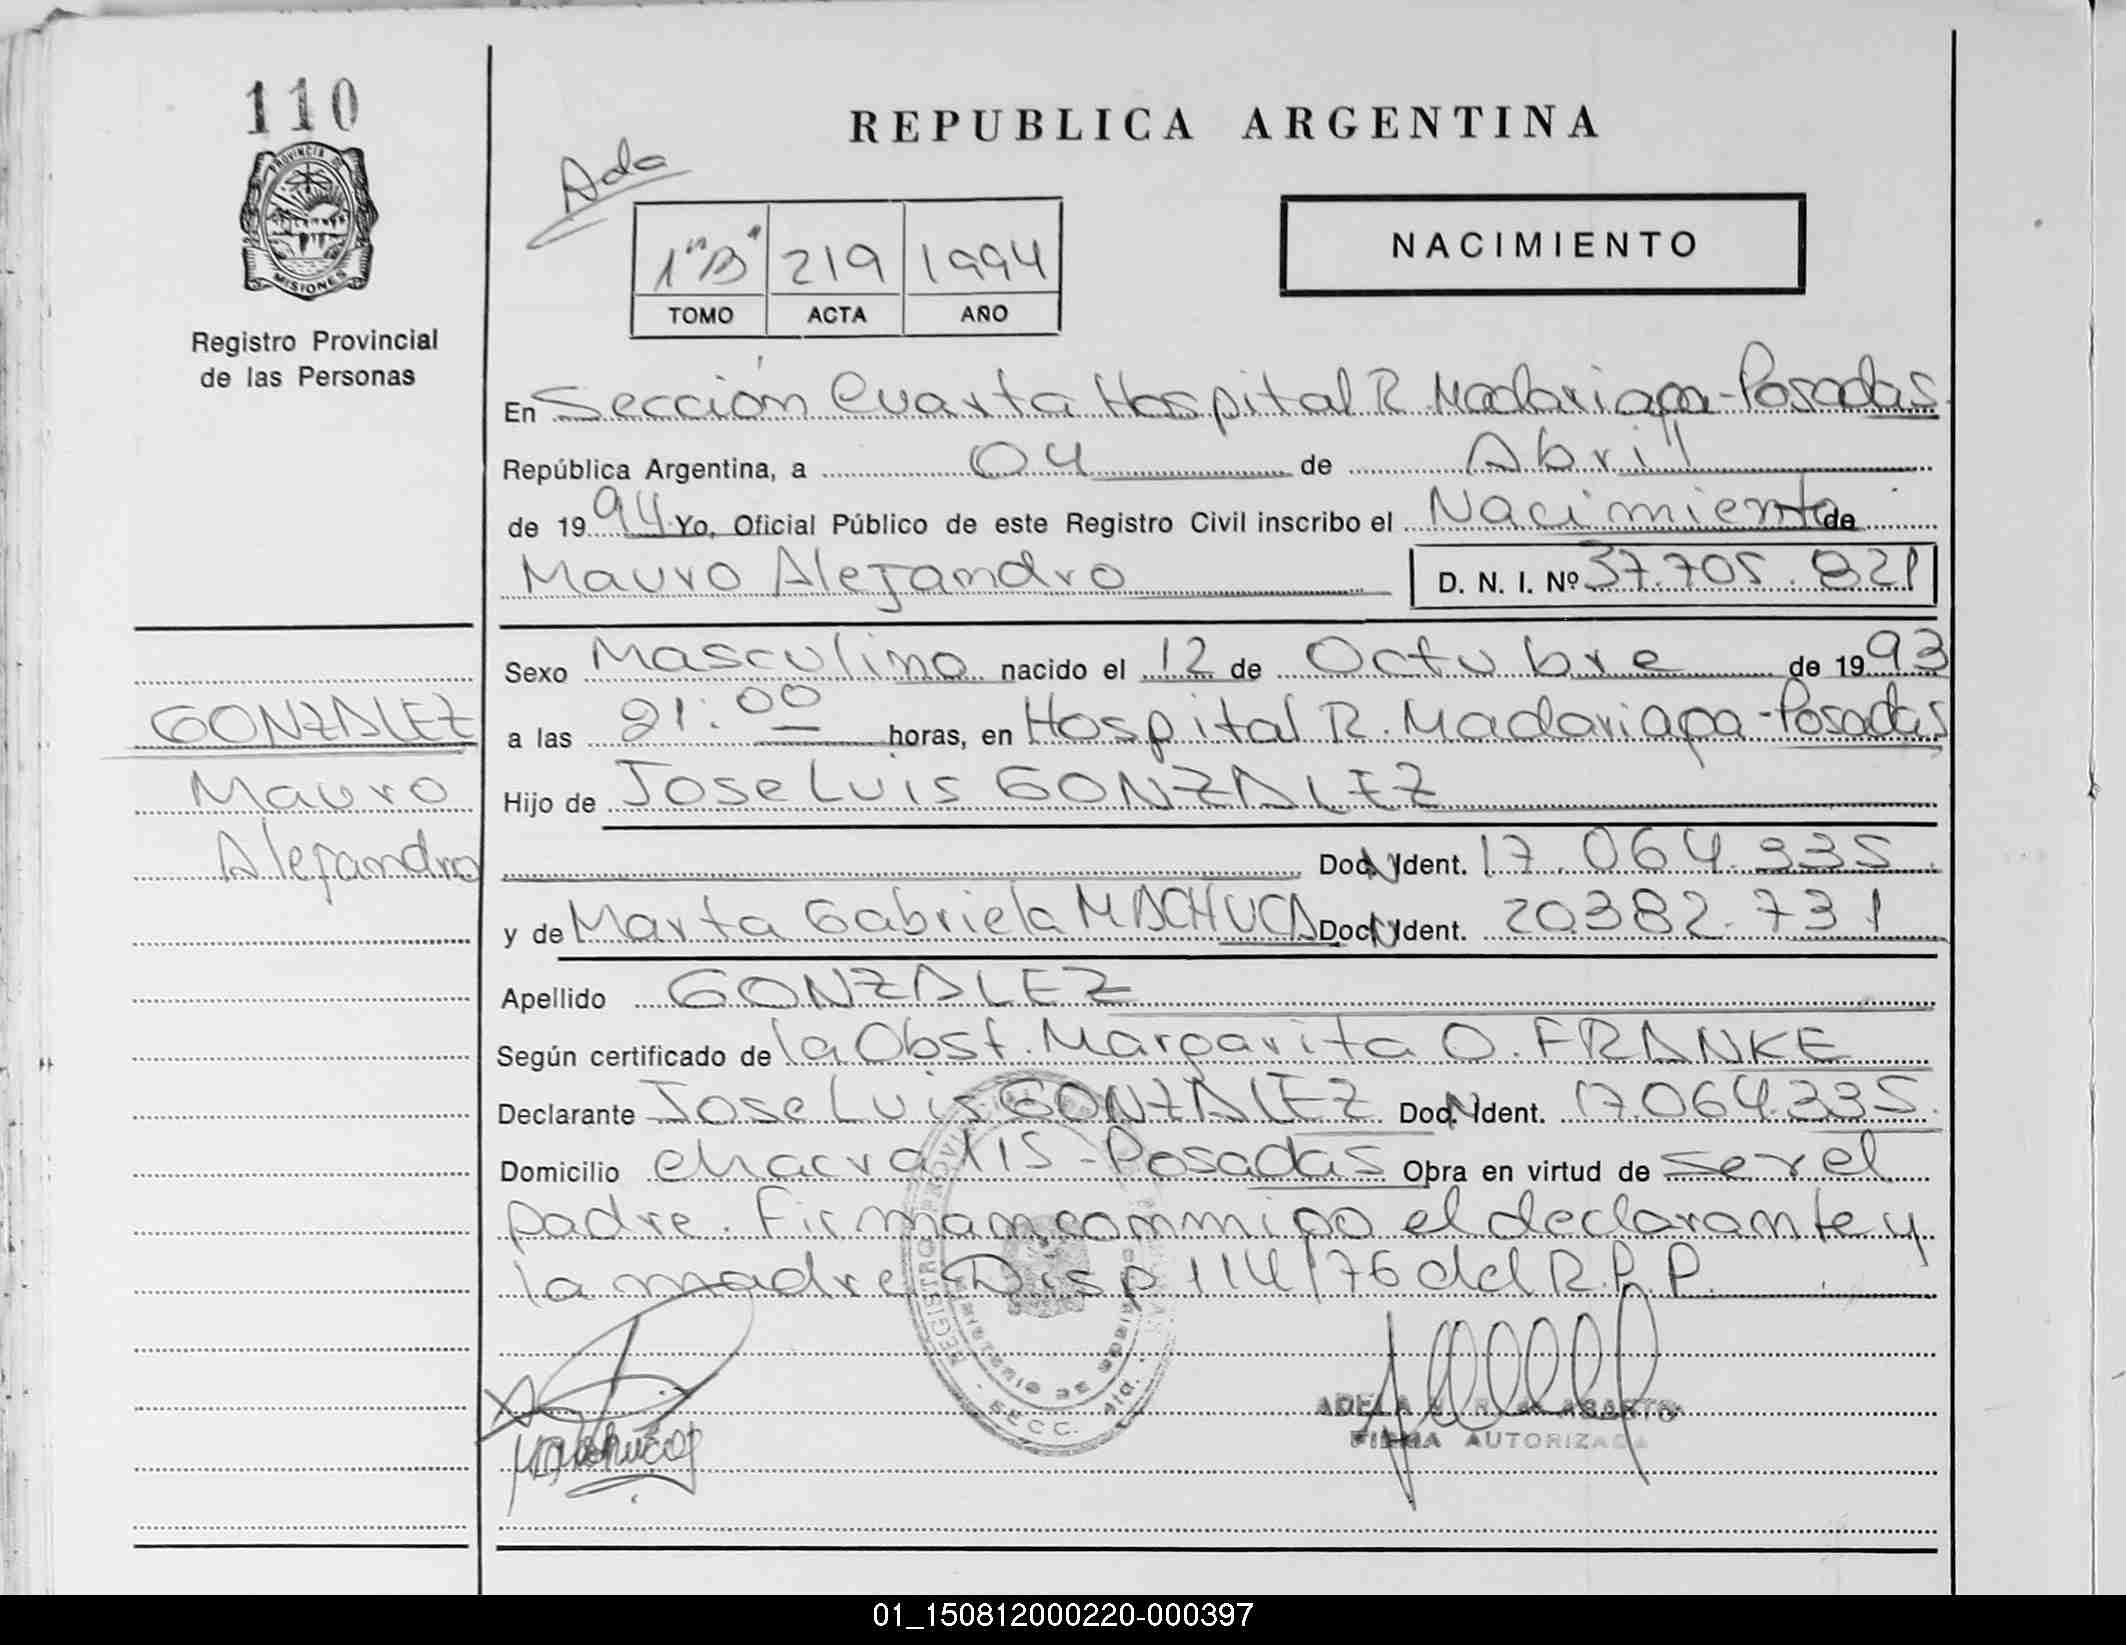 110
REPUBLICA ARGENTINA
Ada
PROVINCIA DE
MISIONES
1"B" 219 1994
TOMO ACTA AÑO
NACIMIENTO
Registro Provincial
de las Personas
En Sección Cuarta Hospital R. Madariaga-Posadas
República Argentina, a 04 de Abril
de 1994 Yo, Oficial Público de este Registro Civil inscribo el Nacimiento de
Mauro Alejandro D. N. I. Nº 37.705.821
Sexo Masculino nacido el 12 de Octubre de 1993
GONZALEZ
Mauro
Alejandro
a las 21:00 horas, en Hospital R. Madariaga-Posadas
Hijo de Jose Luis GONZALEZ
Doc. N Ident. 17.064.335
y de Marta Gabriela MACHUCA Doc. N Ident. 20.382.731
Apellido GONZALEZ
Según certificado de la Obst. Margarita O. FRANKE
Declarante Jose Luis GONZALEZ Doc. N Ident. 17.064.335
Domicilio chacra 115-Posadas Obra en virtud de ser el
padre. Firman conmigo el declarante y
la madre Disp 114/76 del R.P.P.
REGISTRO PROVINCIAL
SECC. 4ta.
Machuca
ADELA ABASTO
FIRMA AUTORIZADA
01_150812000220-000397